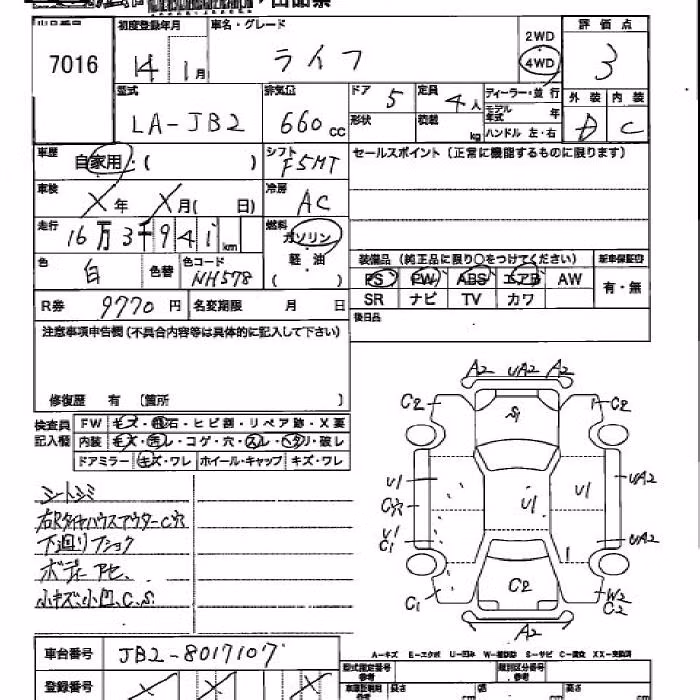 7016
初度登録年月
14年 1月
車名・グレード
ライフ
2WD
4WD
評価点
3
型式
LA-JB2
排気量
660cc
ドア 5
定員 4人
ディーラー・並行
モデル年式 年
形状
積載 kg
ハンドル 左・右
外装 内装
D C
車歴
自家用・( )
シフト
F5MT
セールスポイント(正常に機能するものに限ります)
車検
X年 X月( 日)
冷房
AC
走行
16万3千941km
燃料
ガソリン
軽油
( )
色
白
色替
色コード
NH578
装備品(純正品に限り○をつけてください)
新車保証書
PS PW ABS エアB AW
SR ナビ TV カワ
有・無
R券 9770円
名変期限 月 日
後日品
注意事項申告欄(不具合内容等は具体的に記入して下さい)
修復歴 有 〔箇所 〕
検査員記入欄
FW キズ・飛石・ヒビ割・リペア跡・X要
内装 キズ・汚レ・コゲ・穴・スレ・ヘタリ・破レ
ドアミラー キズ・ワレ ホイール・キャップ キズ・ワレ
シートシミ
右Rタイヤハウスアウター C穴
下廻りフショク
ボディーアセ、
小キズ、小凹、C.S.
A2 UA2 A2
C2 C2
U1 U1 U1 UA2
C穴
U1
C1 UA2
C2
C1 W2
C2
A2
車台番号 JB2-8017107
A-キズ E-エクボ U-凹み W-補修跡 S-サビ C-腐食 XX-交換済
登録番号
型式指定番号
参考
類別区分番号
参考
長さ cm
幅 cm
高さ cm